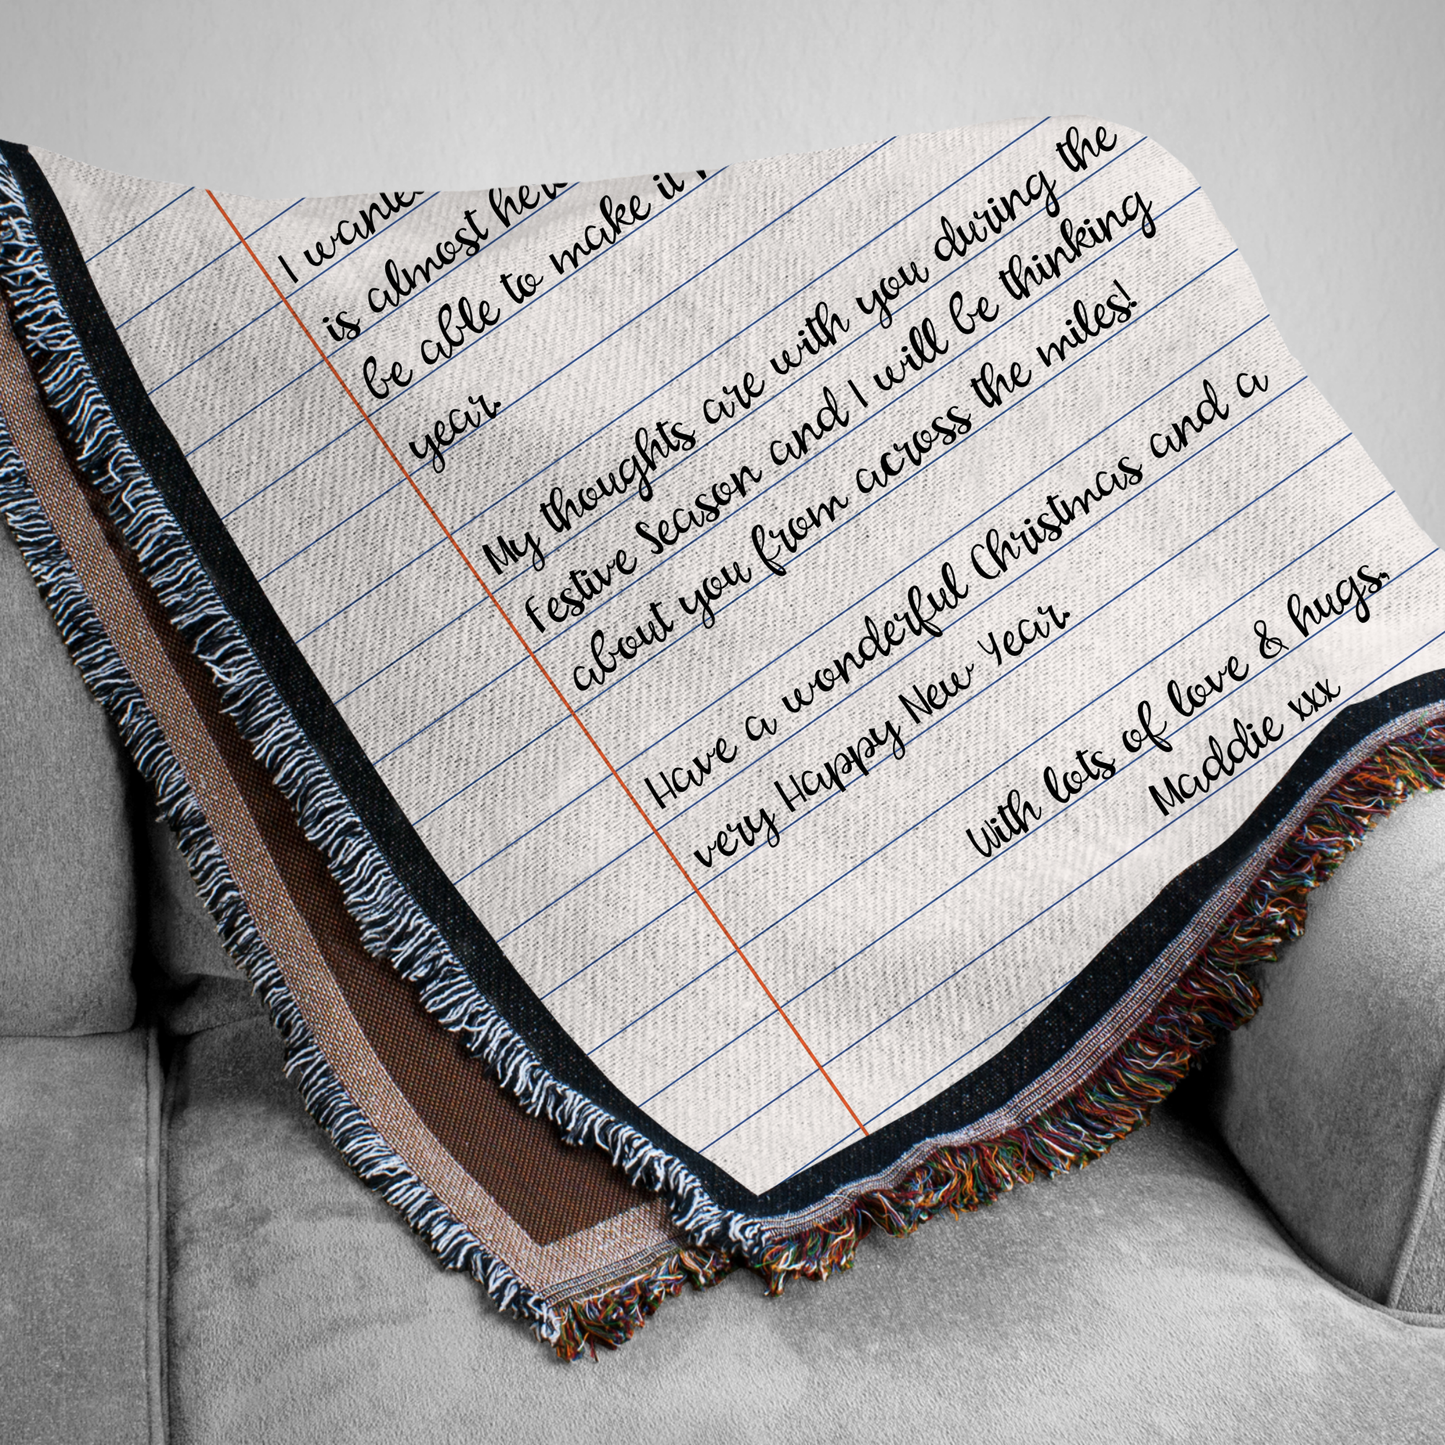 I
is almost
be able to make it
year.
My thoughts are with you during the
Festive Season and I will be thinking
about you from across the miles!
Have a wonderful Christmas and a
very Happy New Year.
With lots of love & hugs,
Maddie xxx